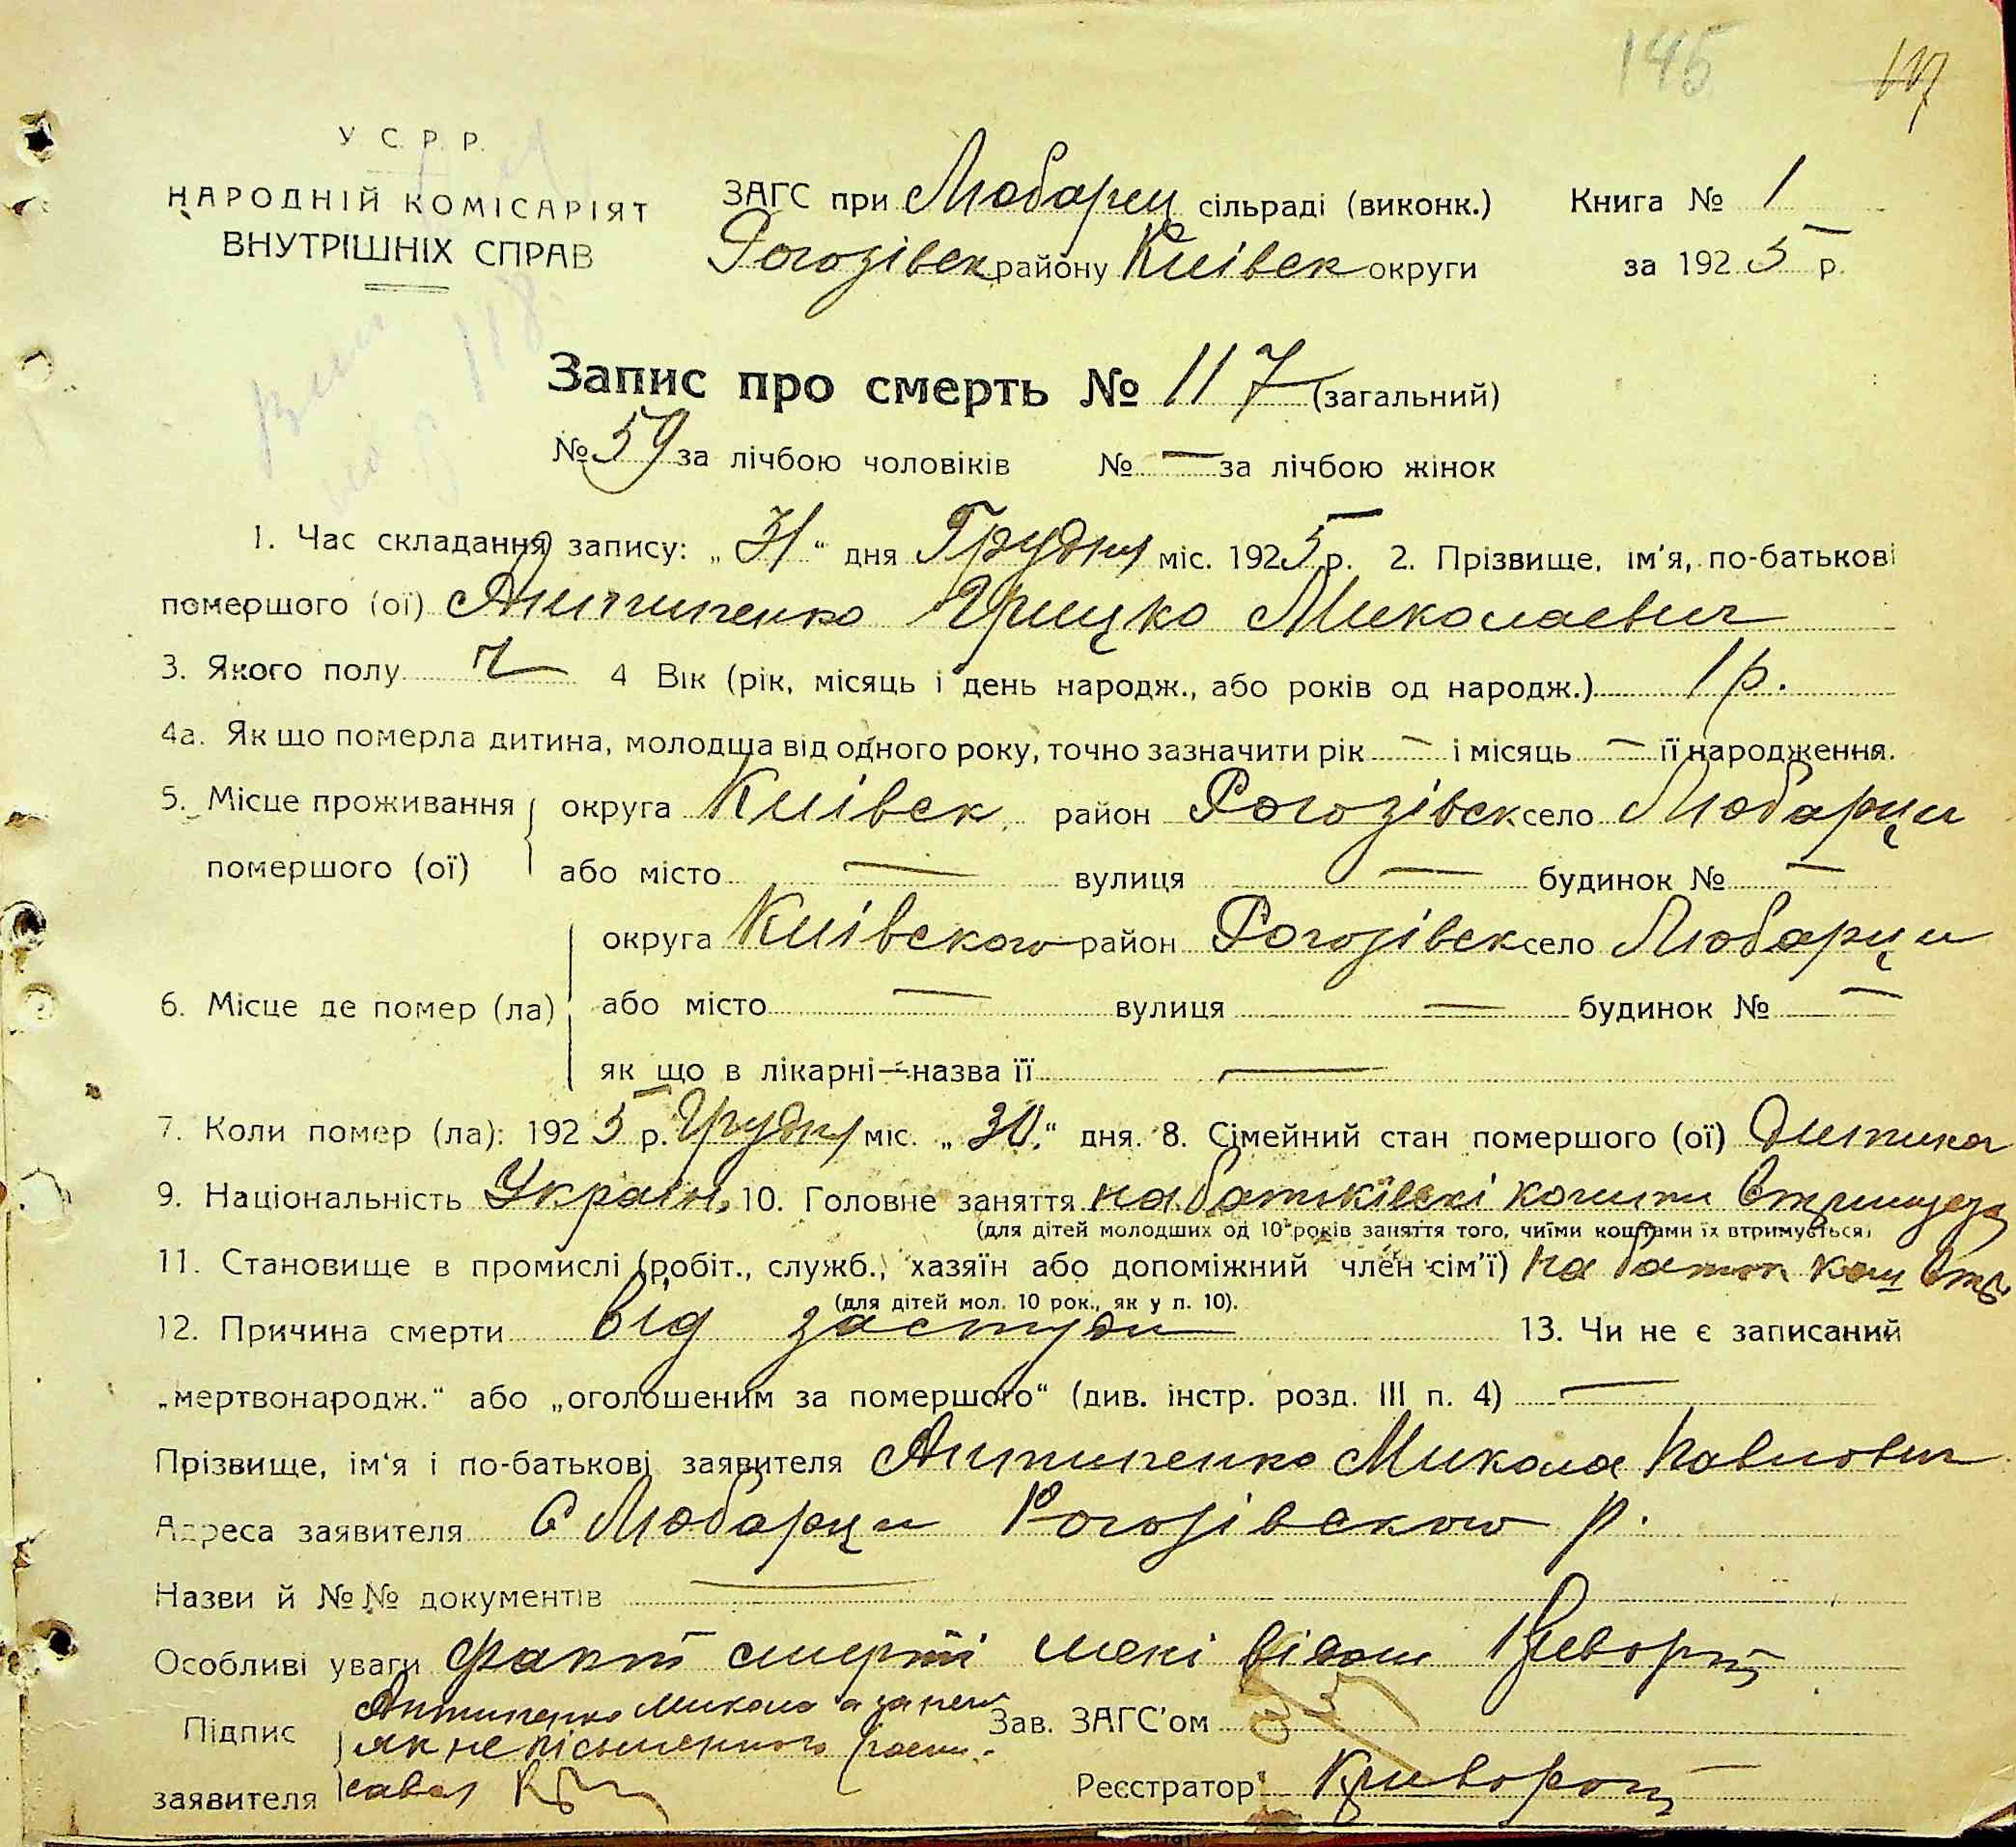 145
117
У.С.Р.Р.
НАРОДНІЙ КОМІСАРІЯТ
ВНУТРІШНІХ СПРАВ
ЗАГС при Любарец сільраді (виконк.) Книга № 1
Рогозівск району Киівск округи за 1925 р.
Запис про смерть № 117 (загальний)
№ 59 за лічбою чоловіків № — за лічбою жінок
1. Час складання запису: „31“ дня Грудня міс. 1925 р. 2. Прізвище, ім'я, по-батькові
помершого (ої) Антипенко Грицко Миколаевич
3. Якого полу ч 4 Вік (рік, місяць і день народж., або років од народж.) 1 р.
4а. Як що померла дитина, молодша від одного року, точно зазначити рік — і місяць — її народження.
5. Місце проживання округа Киівск район Рогозівск село Любарци
помершого (ої) або місто — вулиця — будинок № —
округа Киівского район Рогозівск село Любарци
6. Місце де помер (ла) або місто — вулиця — будинок № —
як що в лікарні—назва її —
7. Коли помер (ла): 1925 р. Грудня міс. „30“ дня. 8. Сімейний стан помершого (ої) Дитина
9. Національність Україн. 10. Головне заняття на батьківскі кошти
(для дітей молодших од 10 років заняття того, чиїми коштами їх втримується)
11. Становище в промислі (робіт., служб., хазяїн або допоміжний член сім'ї) на батьк кош втр
(для дітей мол. 10 рок., як у п. 10).
12. Причина смерти від застуди 13. Чи не є записаний
„мертвонародж.“ або „оголошеним за помершого“ (див. інстр. розд. III п. 4) —
Прізвище, ім'я і по-батькові заявителя Антипенко Микола Павлович
Адреса заявителя с Любарци Рогозівского р.
Назви й №№ документів —
Особливі уваги факт смерті мені відом Криворот
Підпис Антипенко Микола а за него Зав. ЗАГС'ом
як не письменного роспи-
заявителя савсь Реєстратор Криворот